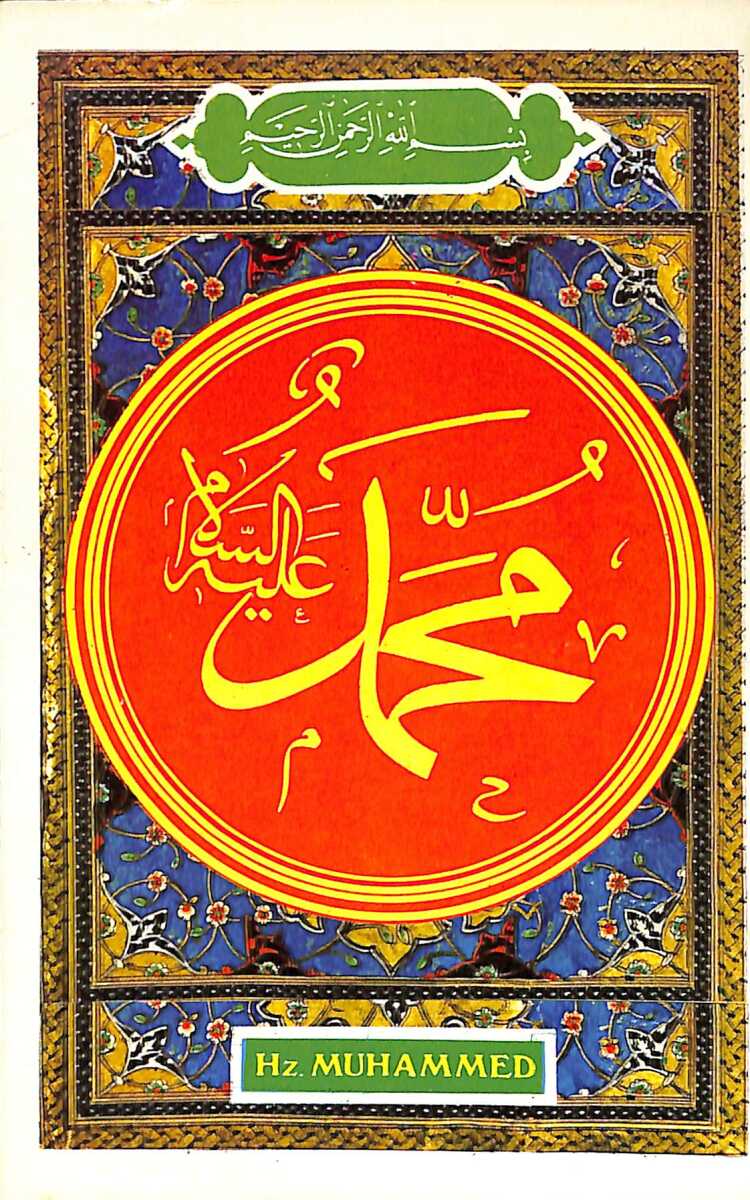 بِسْمِ اللهِ الرَّحْمنِ الرَّحِيمِ
مُحَمَّد
عَلَيْهِ السَّلَام
Hz. MUHAMMED